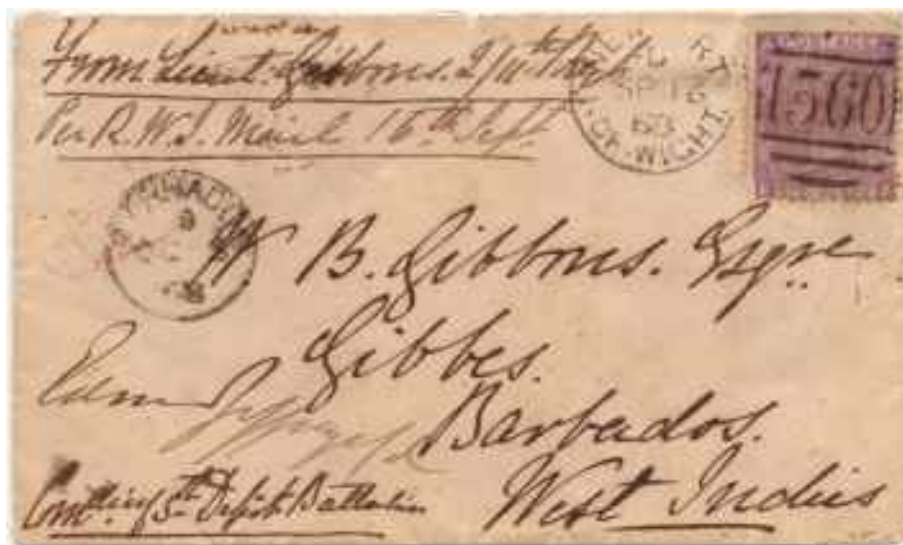 From Lieut. Gibbons. 2/11th
Per R. W. I. Mail 16th Sept
SP 16
OF. WIGHT.
1560
W B. Gibbons. Esqre
Gibbes.
Barbados.
West Indies
Comding 5th Depôt Battalion